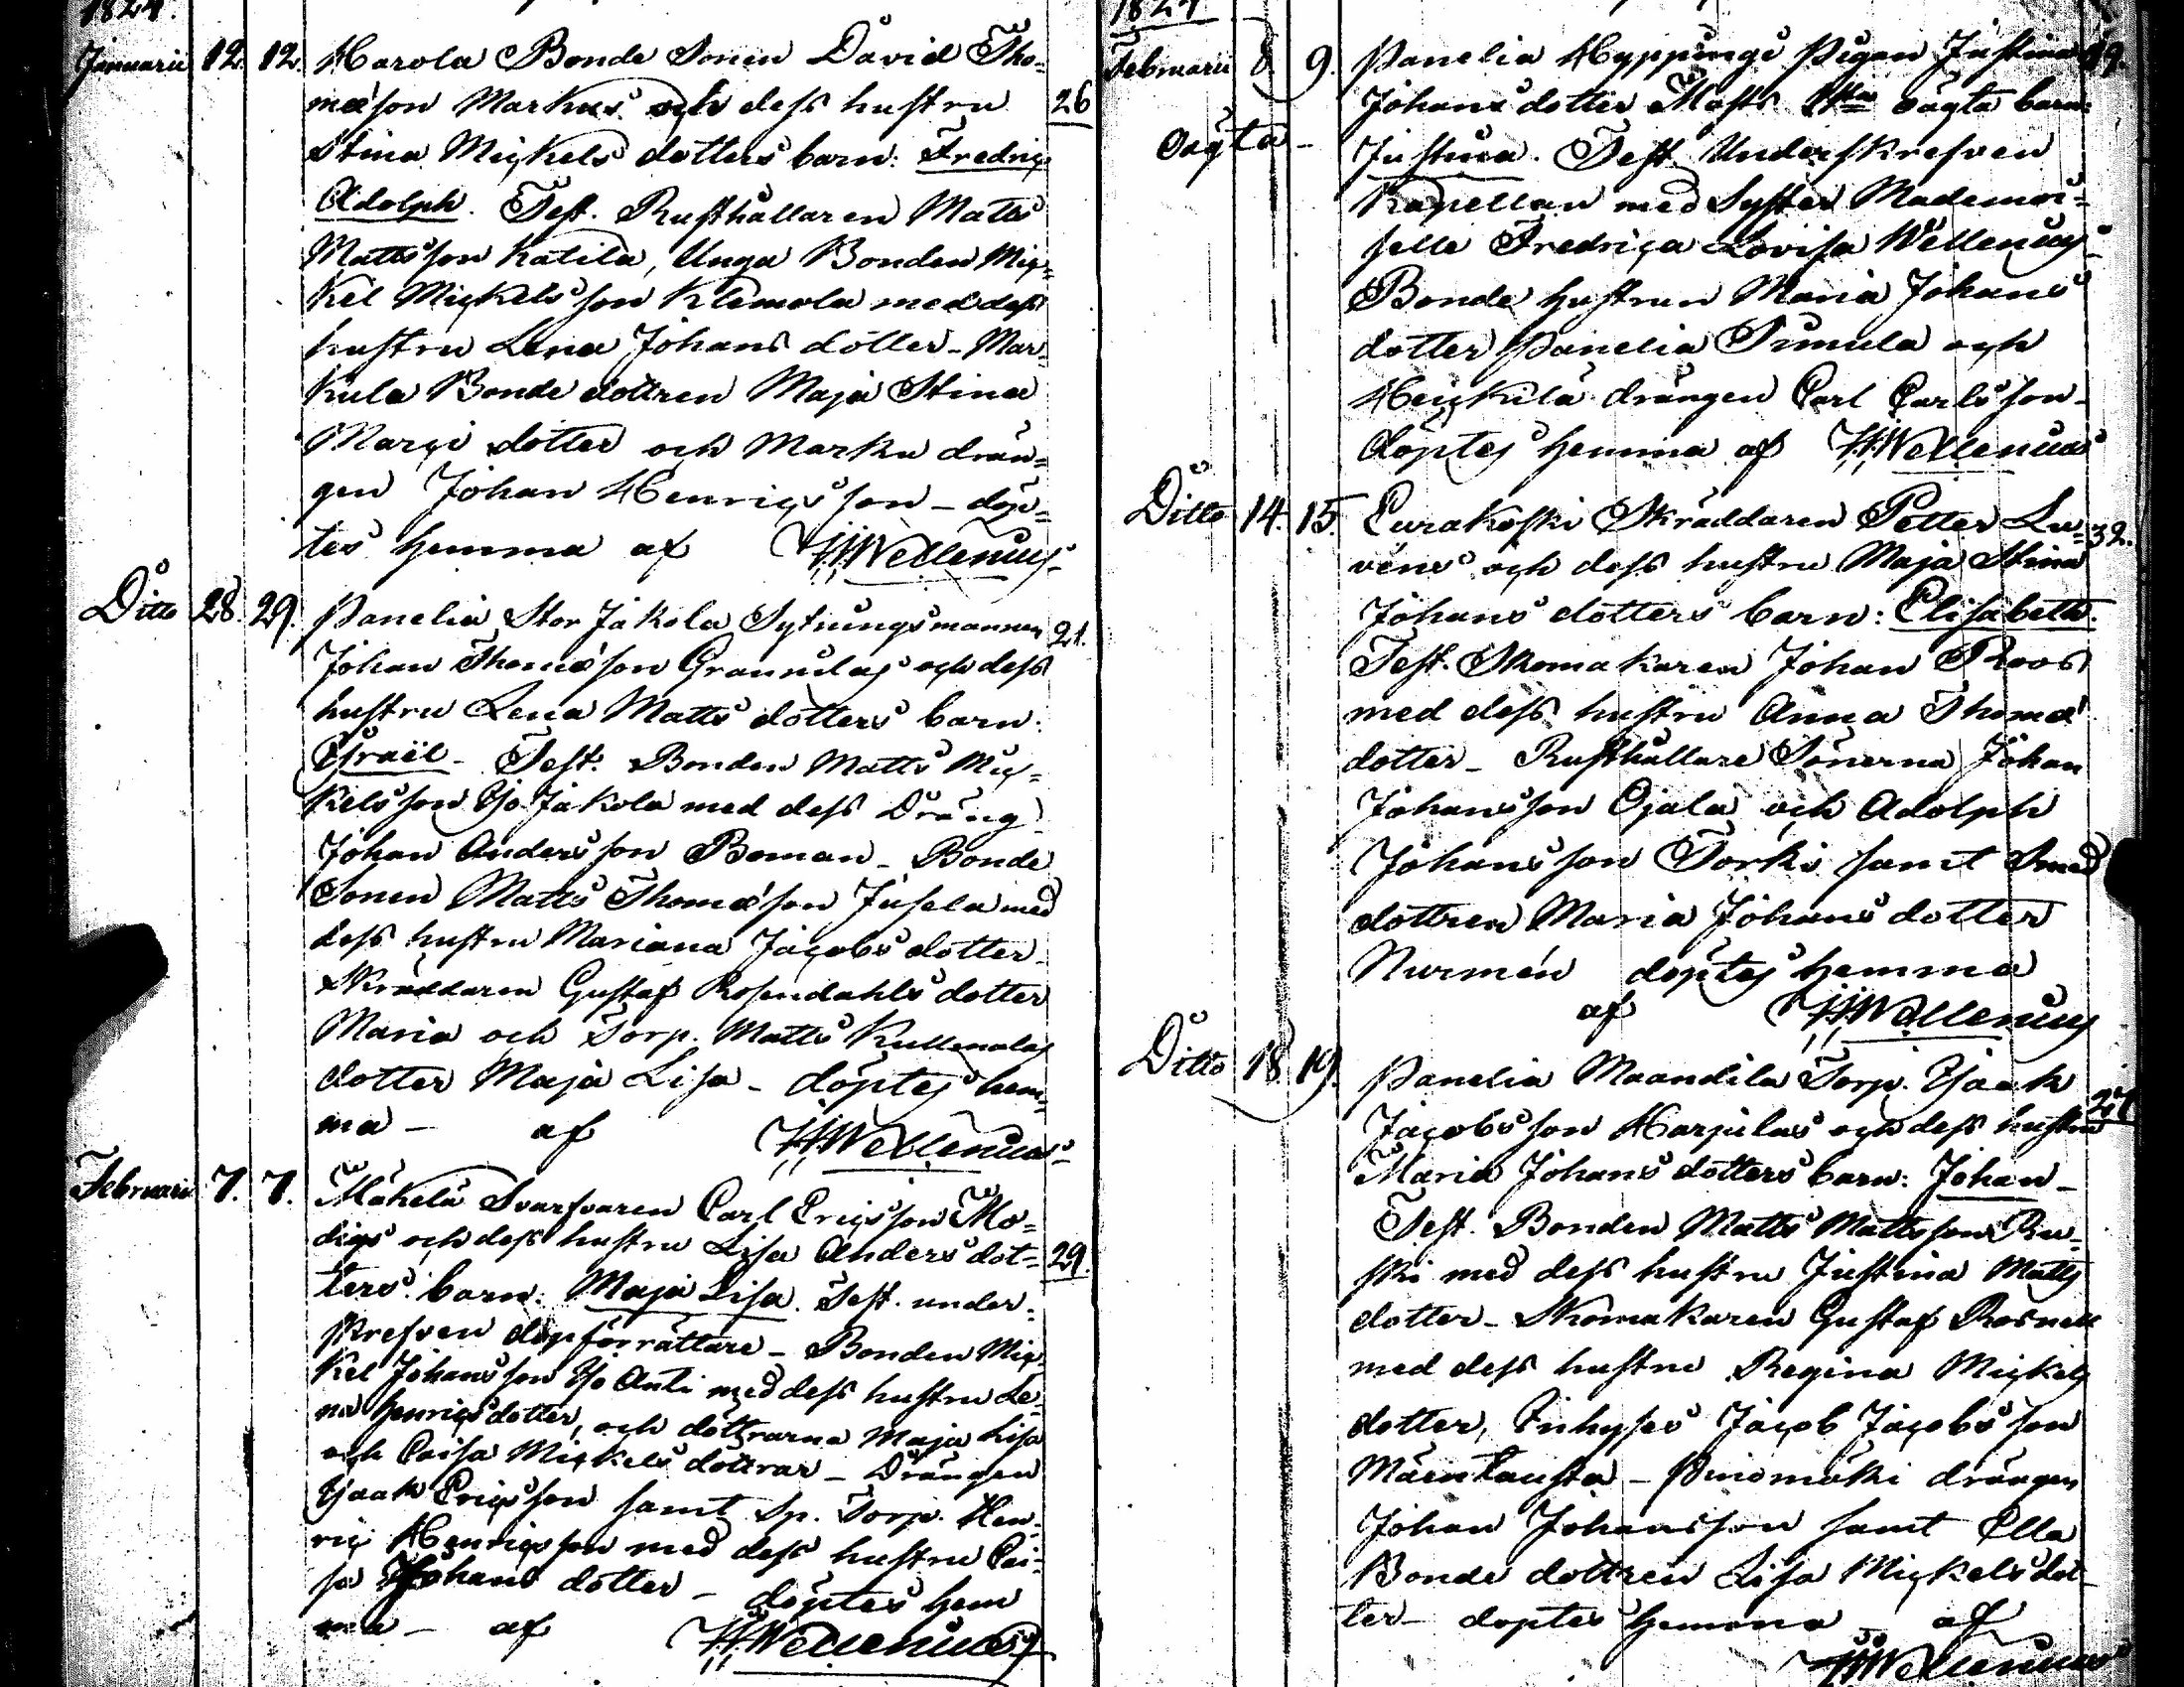 1824.
Januarii 12. 12. Harola Bonde Sonen David Tho-
mæson Markus och dess hustru 26
Stina Mickels dotters barn: Fredric
Adolph. Test. Rusthållaren Matts
Mattsson Katila, Unga Bonden Mic-
kel Mickelsson Klemola med dess
hustru Lena Johans dotter - Mar-
kula Bonde dottren Maja Stina
Marci dotter och Marku drän-
gen Johan Henricsson - döp-
tes hemma af HWellenius
Ditto 28. 29. Panelia Stor Jakola Sytningsmannen 21.
Johan Thomæson Grannilas och dess
hustru Lena Matts dotters barn:
Israël - Test. Bonden Matts Mic-
kelsson Iso Jakola med dess Dräng
Johan Andersson Boman - Bonde
Sonen Matts Thomæson Jusela med
dess hustru Mariana Jacobs dotter -
Skräddaren Gustaf Rosendahls dotter
Maria och Torp. Matts Kullenalas
dotter Maja Lisa - döptes hem-
ma - af HWellenius
Februarii 7. 7. Mäkelä Svarfvaren Carl Ericsson Mo-
digs och dess hustru Lisa Anders dot- 29.
ters barn: Maja Lisa. Test. under-
skrefven dopförrättare - Bonden Mic-
kel Johansson Iso Anti med dess hustru Le-
na Henrics dotter, och döttrarna Maja Lisa
och Caisa Mickels döttrar - Drängen
Isaak Ericsson samt Sp. Torp. Hen-
ric Henricsson med dess hustru Cai-
sa Johans dotter - döptes hem
ma - af HWellenius
1824
Februarii 8. 9. Panelia Hyppingi Pigan Justina 19.
Johans dotter Masts oägta barn:
Oägta - Justina. Test. Underskrefven
Kapellan med Syster Mademoi-
selle Fredrica Lovisa Wellenius
Bonde hustrun Maria Johans
dotter Panelia Tumula och
Heickilä drängen Carl Carlsson -
döptes hemma af HWellenius
Ditto 14. 15. Eurakoski Skräddaren Petter Lu- 32.
véns och dess hustru Maja Stina
Johans dotters barn: Elisabeth.
Test. Skomakaren Johan Roos
med dess hustru Anna Thomæ
dotter - Rusthållare Sönerna Johan
Johansson Ojala och Adolph
Johansson Torki samt Smed
dottren Maria Johans dotter
Nurmén döptes hemma
af HWellenius
Ditto 18 19. Panelia Maandila Torp. Isaak
Jacobsson Harjulas och dess hustru 27
Maria Johans dotters barn: Johan -
Test. Bonden Matts Mattsson Ru-
ski med dess hustru Justina Matts
dotter - Skomakaren Gustaf Rosnell
med dess hustru Regina Mickels
dotter, Inhyses Jacob Jacobsson
Mäentausta - Pinomäki drängen
Johan Johansson samt Ella
Bonde dottren Lisa Mickelsdot-
ter - döptes hemma af
HWellenius